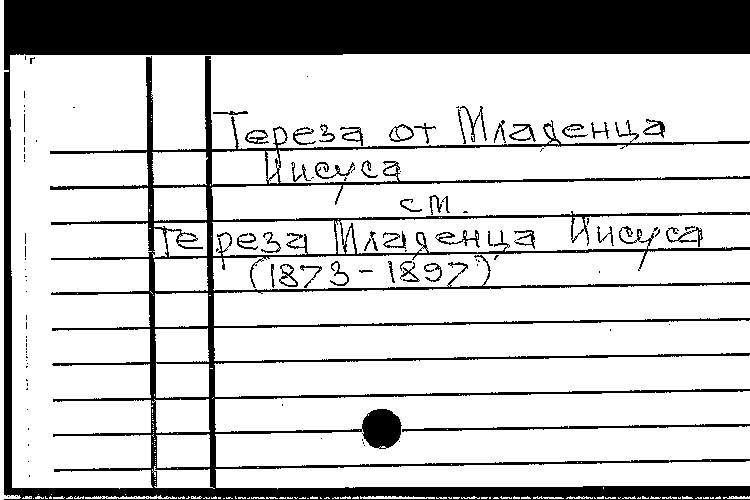 Тереза от Младенца
Иисуса
см.
Тереза Младенца Иисуса
(1873-1897)